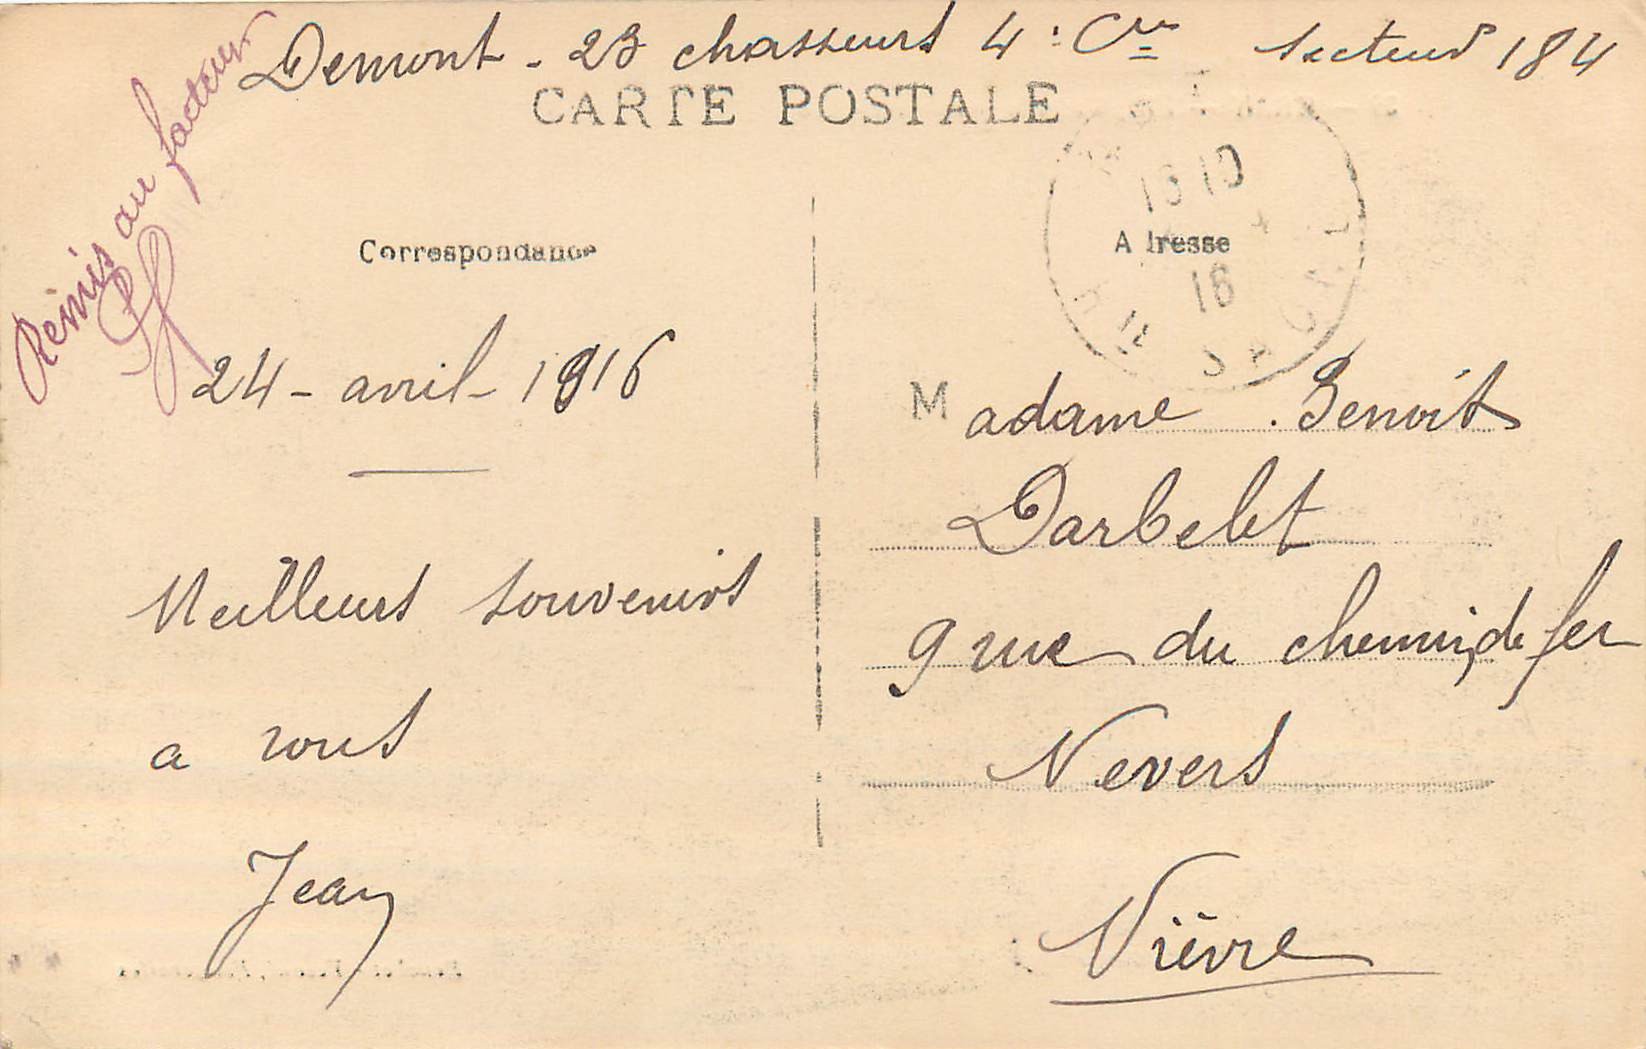 Demont - 23 chasseurs 4e Cie secteur 184
CARTE POSTALE
Remis au facteur
Correspondance
Adresse
13 10
4
16
24 - avril - 1916
Meilleurs souvenirs
a vous
Jean
Madame Benoit
Darbelet
9 rue du chemin de fer
Nevers
Nièvre